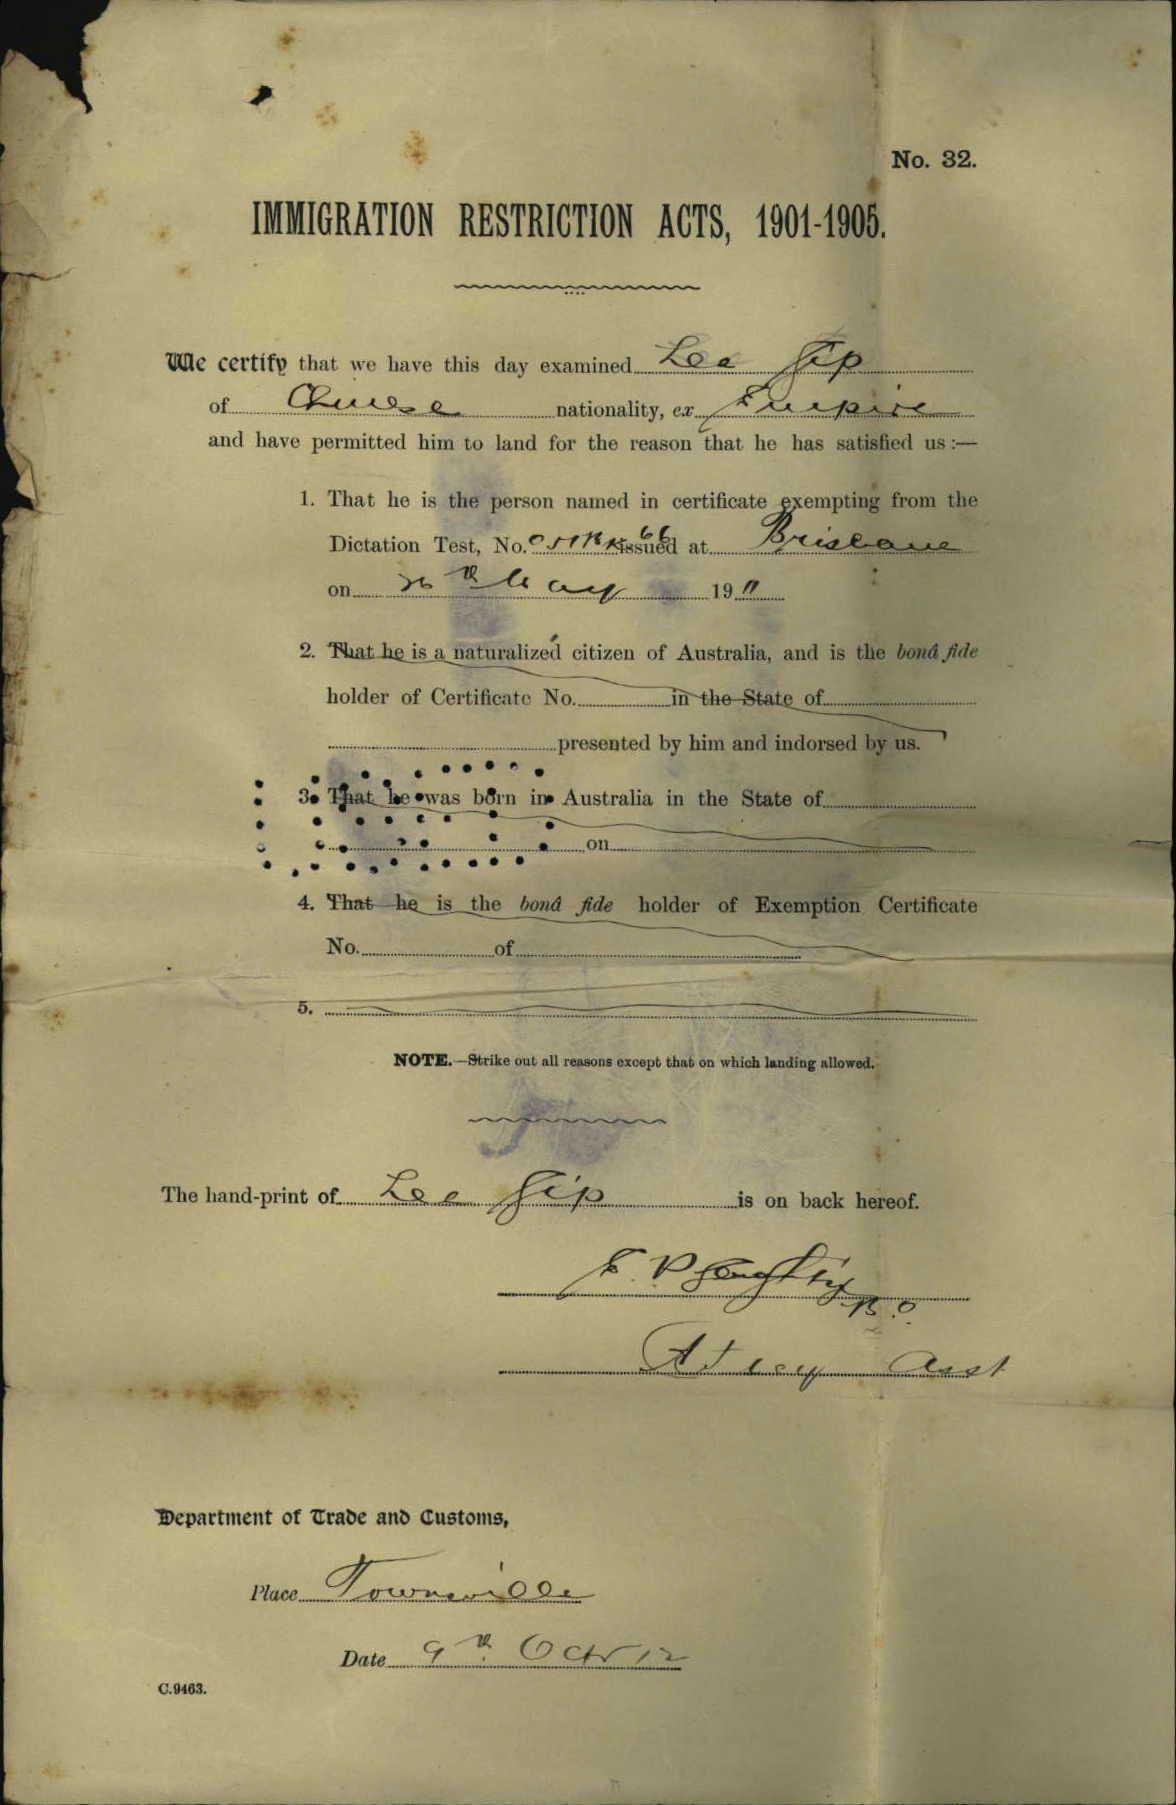 No. 32.
IMMIGRATION RESTRICTION ACTS, 1901-1905.
We certify that we have this day examined Lee Gip
of Chinese nationality, ex Empire
and have permitted him to land for the reason that he has satisfied us :—
1. That he is the person named in certificate exempting from the
Dictation Test, No. 66 issued at Brisbane
on 26th May 1911
2. That he is a naturalized citizen of Australia, and is the bonâ fide
holder of Certificate No. in the State of
presented by him and indorsed by us.
3. That he was born in Australia in the State of
on
4. That he is the bonâ fide holder of Exemption Certificate
No. of
5.
NOTE.—Strike out all reasons except that on which landing allowed.
The hand-print of Lee Gip is on back hereof.
E. P.
Asst
Department of Trade and Customs,
Place Townsville
Date 9th Octr 12
C.9463.